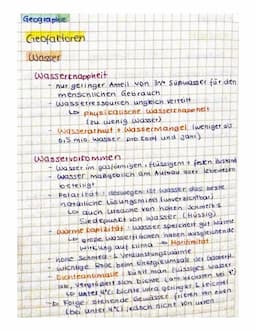 Geographie
Geofaktoren
Wasser
Wasserknappheit
- nur geringer Anteil von 3% Süßwasser für den
menschlichen Gebrauch
- Wasserressourcen ungleich verteilt
↳ physikalische Wasserknappheit
(zu wenig Wasser)
Wasserarmut + Wassermangel (weniger als
0,5 mio. Wasser pro Kopf und Jahr)
Wasservorkommen
- Wasser im gasförmigen, flüssigem + festen
- Wasser maßgeblich am Aufbau aller Lebewesen
beteiligt
- Polarität: deswegen ist Wasser das beste
natürliche Lösungsmittel
↳ auch Ursache von hohen Schmelz &
Siedepunkt von Wasser (flüssig)
- Wärmekapazität: Wasser speichert gut Wärme
↳ große Wasserflächen haben ausgleichende
Wirkung auf Klima → Maritimität
- hohe Schmelz- & Verdunstungswärme
- wichtige Rolle beim Energieumsatz der
- Dichteanomalie: kühlt man flüssiges Wasser
ab, vergrößert sich Dichte (am höchsten bei 4°)
- unter 4°C: Dichte wird geringer & leichter
↳ Folge: stehende Gewässer frieren von oben
(bei unter 4°C) jedoch nicht von unten